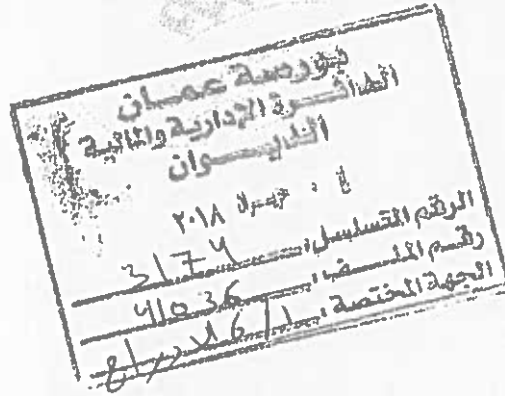 بورصة عمان
الدائرة الإدارية والمالية
الديوان
٤ . تموز ٢٠١٨
الرقم المتسلسل: 3174
رقم الملف: 41036
الجهة المختصة: الإدراج